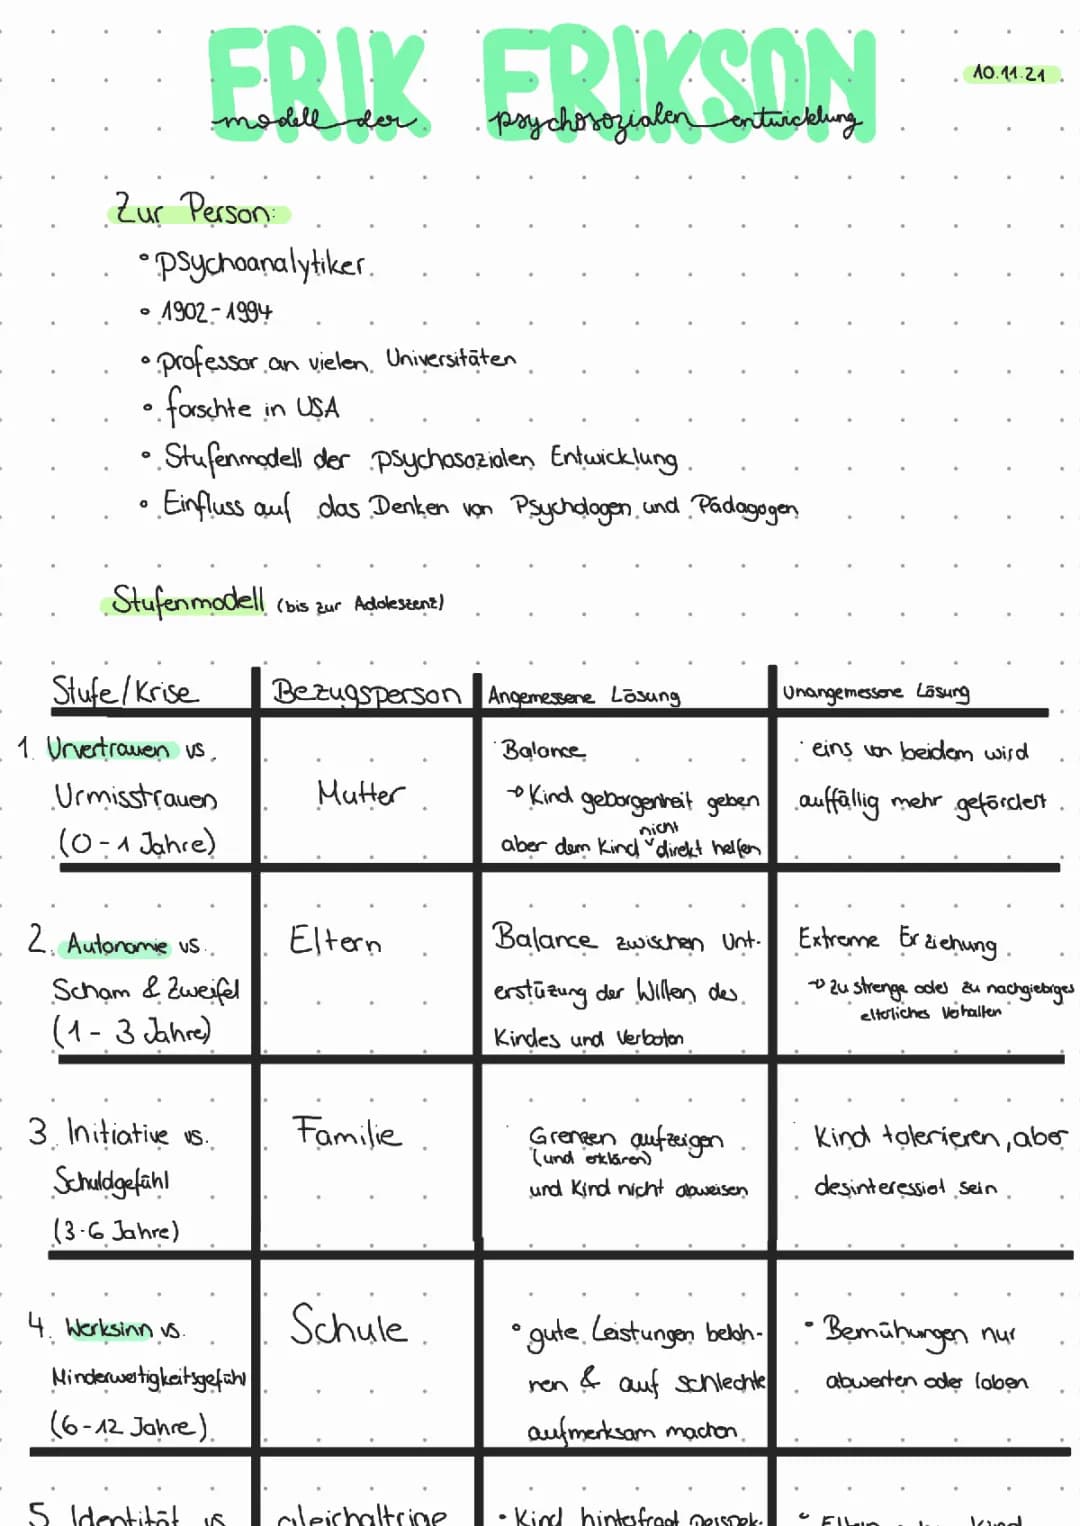 ERIK ERIKSON
modell der psychosozialen entwicklung
10.11.21
Zur Person:
• psychoanalytiker
• 1902-1994
• professor an vielen Universitäten
• forschte in USA
• Stufenmodell der psychosozialen Entwicklung
• Einfluss auf das Denken von Psychologen und Pädagogen
Stufenmodell (bis zur Adoleszenz)
Stufe/Krise
Bezugsperson
Angemessene Lösung
Unangemessene Lösung
1. Urvertrauen vs.
Urmisstrauen
(0-1 Jahre)
Mutter
Balance
→ Kind geborgenheit geben
nicht
aber dem Kind ˅ direkt helfen
eins von beidem wird
auffällig mehr gefördert
2. Autonomie vs.
Scham & Zweifel
(1-3 Jahre)
Eltern
Balance zwischen Unt-
erstüzung der Willen des
Kindes und Verboten
Extreme Erziehung
→ zu strenge oder zu nachgiebiges
elterliches Verhalten
3. Initiative vs.
Schuldgefühl
(3-6 Jahre)
Familie
Grenzen aufzeigen
(und erklären)
und Kind nicht abweisen
Kind tolerieren, aber
desinteressiert sein
4. Werksinn vs.
Minderwertigkeitsgefühl
(6-12 Jahre)
Schule
• gute Leistungen beloh-
nen & auf schlechte
aufmerksam machen
• Bemühungen nur
abwerten oder loben
5. Identität vs
gleichaltrige
• Kind hinterfragt perspek-
• Eltern Kind